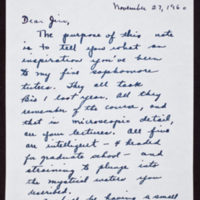 November 27, 1960
Dear Jim,
The purpose of this note
is to tell you what an
inspiration you've been
to my five sophomore
tutees. They all took
Bio 1 last year. All they
remember of the course, and
that in microscopic detail,
are your lectures. All five
are intelligent - & headed
for graduate school - and
straining to plunge into
the mystical waters you
described.
be having a small